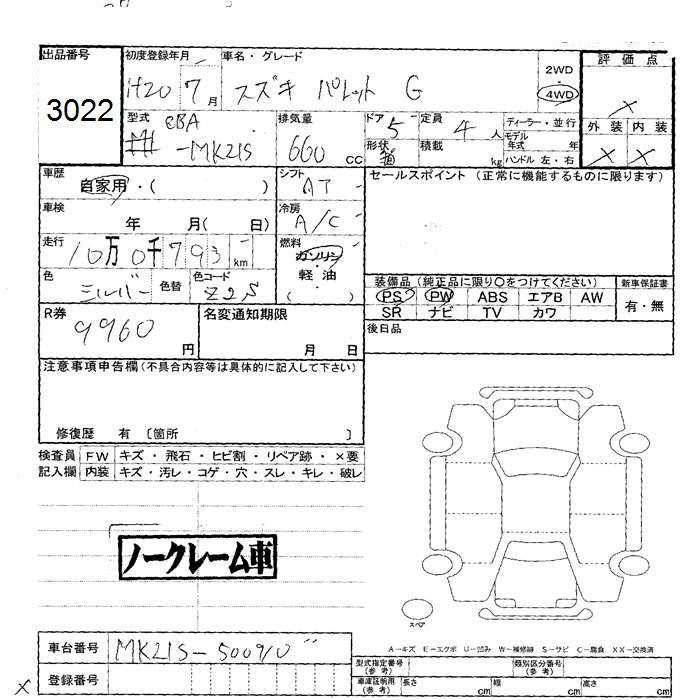 出品番号
3022
初度登録年月
H20 7月
車名・グレード
スズキ パレット G
2WD
・
4WD
評価点
×
外装 内装
× ×
型式
CBA
-MK21S
排気量
660 CC
ドア 5
形状
定員 4 人
積載 kg
ディーラー・並行
モデル年式 年
ハンドル 左・右
車歴
自家用・( )
車検
年 月( 日)
走行
10万0千793 km
シフト
AT
冷房
A/C
燃料
ガソリン
・
軽油
( )
色
シルバー
色替
色コード
Z2S
セールスポイント (正常に機能するものに限ります)
装備品 (純正品に限り○をつけてください)
PS PW ABS エアB AW
SR ナビ TV カワ
新車保証書
有・無
R券
9960
円
名変通知期限
月 日
後日品
注意事項申告欄(不具合内容等は具体的に記入して下さい)
修復歴 有 〔箇所 〕
検査員 FW キズ・飛石・ヒビ割・リペア跡・×要
記入欄 内装 キズ・汚レ・コゲ・穴・スレ・キレ・破レ
ノークレーム車
スペア
A−キズ E−エクボ U−凹み W−補修跡 S−サビ C−腐食 XX−交換済
車台番号
MK21S-500910
登録番号
×
型式指定番号(参考)
類別区分番号(参考)
車庫証明用(参考) 長さ cm 幅 cm 高さ cm